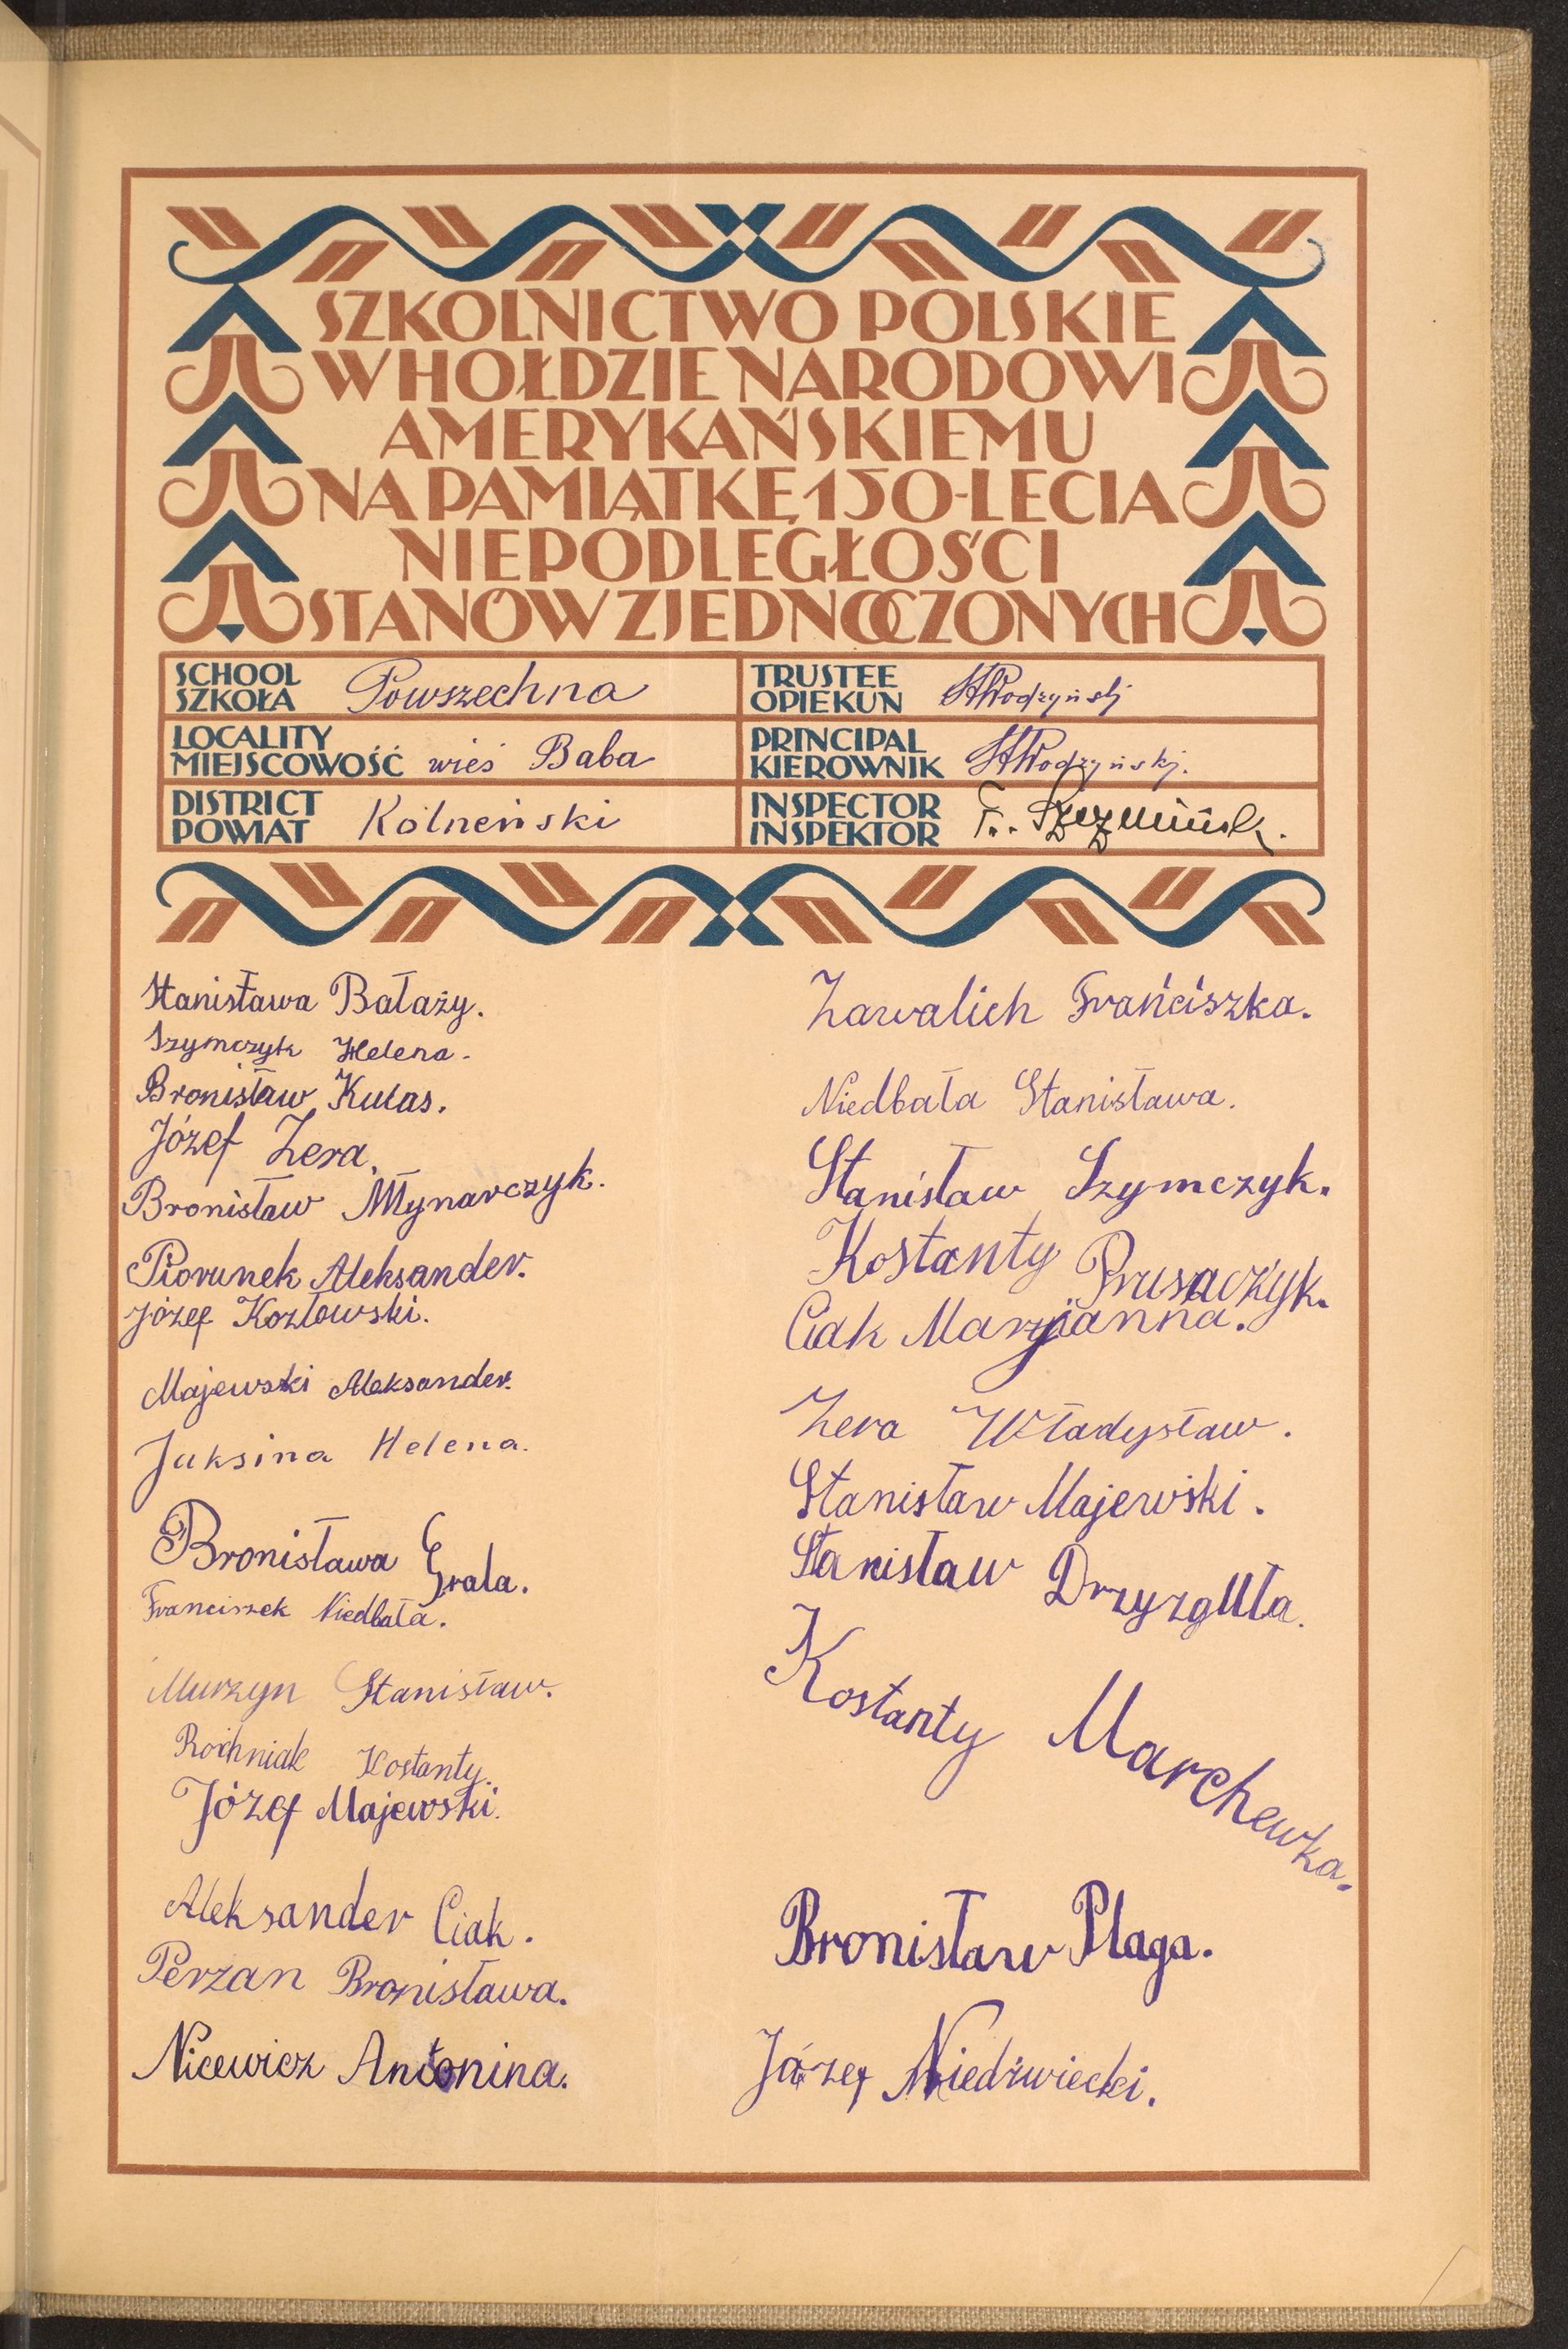 SZKOLNICTWO POLSKIE
W HOŁDZIE NARODOWI
AMERYKAŃSKIEMU
NA PAMIĄTKĘ 150-LECIA
NIEPODLEGŁOŚCI
STANÓW ZJEDNOCZONYCH
SCHOOL
SZKOŁA Powszechna
TRUSTEE
OPIEKUN
LOCALITY
MIEJSCOWOŚĆ wieś Baba
PRINCIPAL
KIEROWNIK
DISTRICT
POWIAT Kolneński
INSPECTOR
INSPEKTOR
Stanisława Bałaży.
Szymczyk Helena.
Bronisław Kulas.
Józef Zera.
Bronisław Młynarczyk.
Piorunek Aleksander.
Józef Kozłowski.
Majewski Aleksander.
Juksina Helena.
Bronisława Grala.
Franciszek Niedbała.
Murzyn Stanisław.
Rochniak Kostanty.
Józef Majewski.
Aleksander Ciak.
Perzan Bronisława.
Nicewicz Antonina.
Zawalich Franciszka.
Niedbała Stanisława.
Stanisław Szymczyk.
Kostanty Prusaczyk.
Ciak Marjanna.
Zera Władysław.
Stanisław Majewski.
Stanisław Drzyzguła.
Kostanty Marchewka.
Bronisław Plaga.
Józef Niedźwiecki.